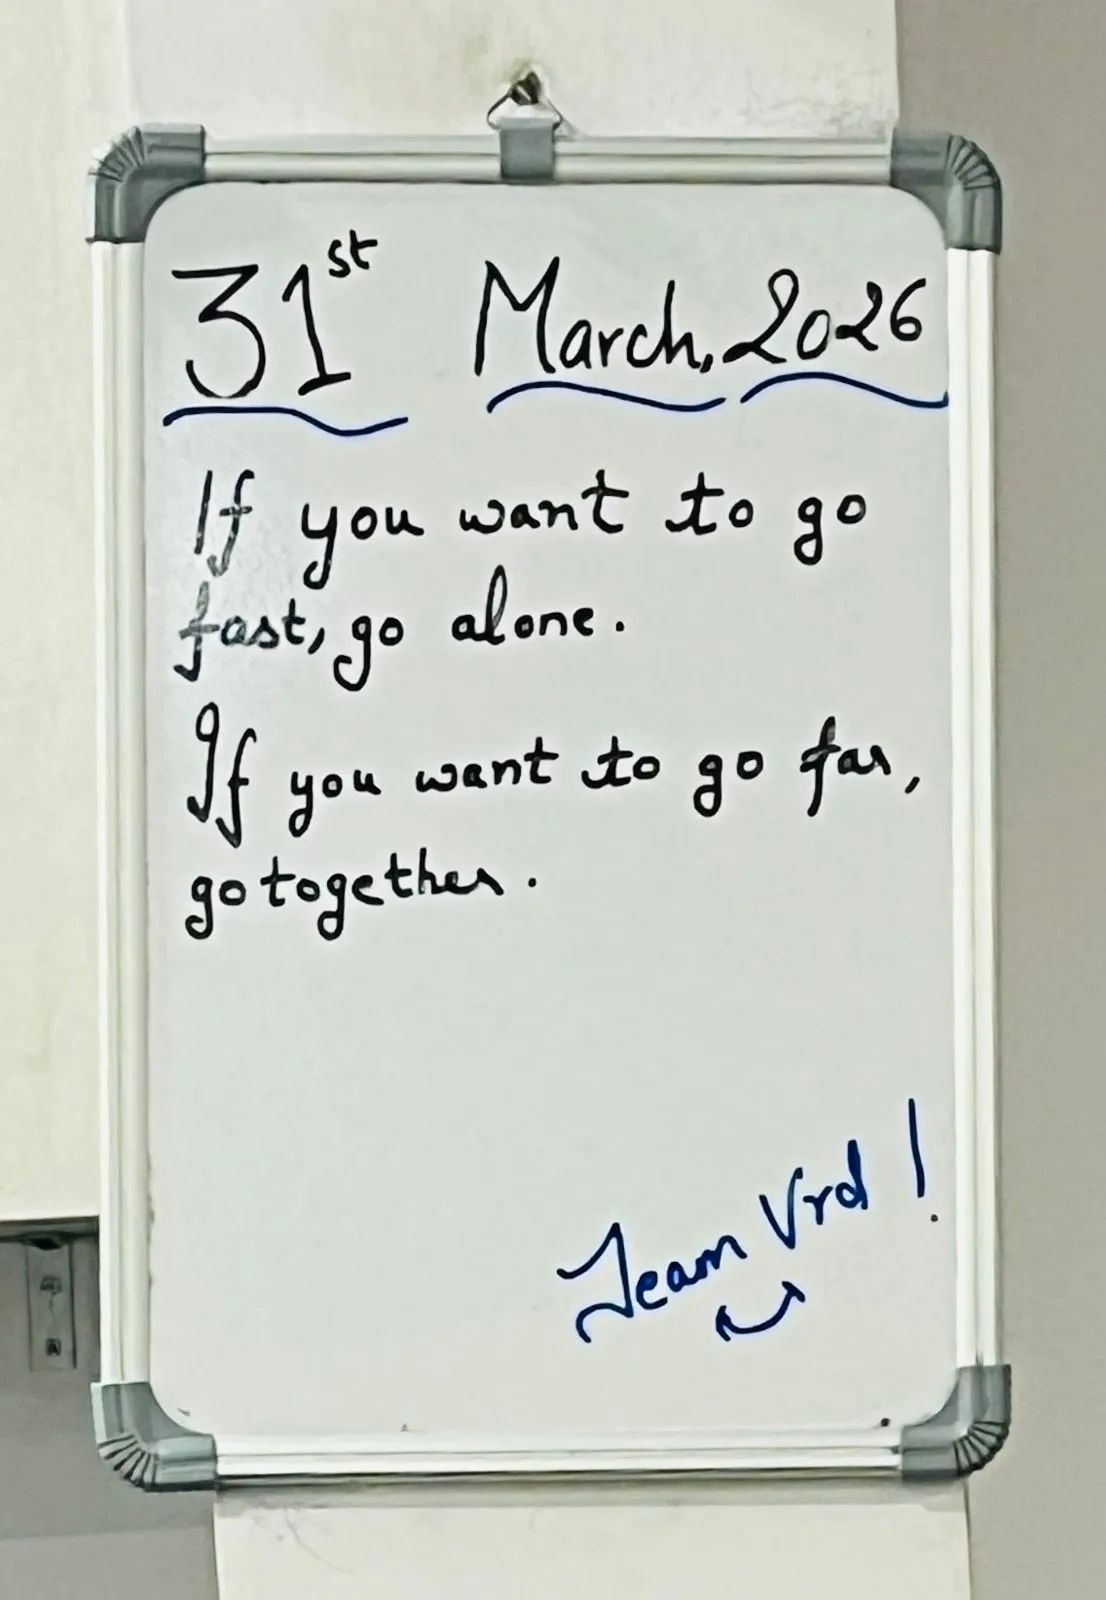 31st March, 2026
If you want to go
fast, go alone.
If you want to go far,
go together.
Team Vrd !